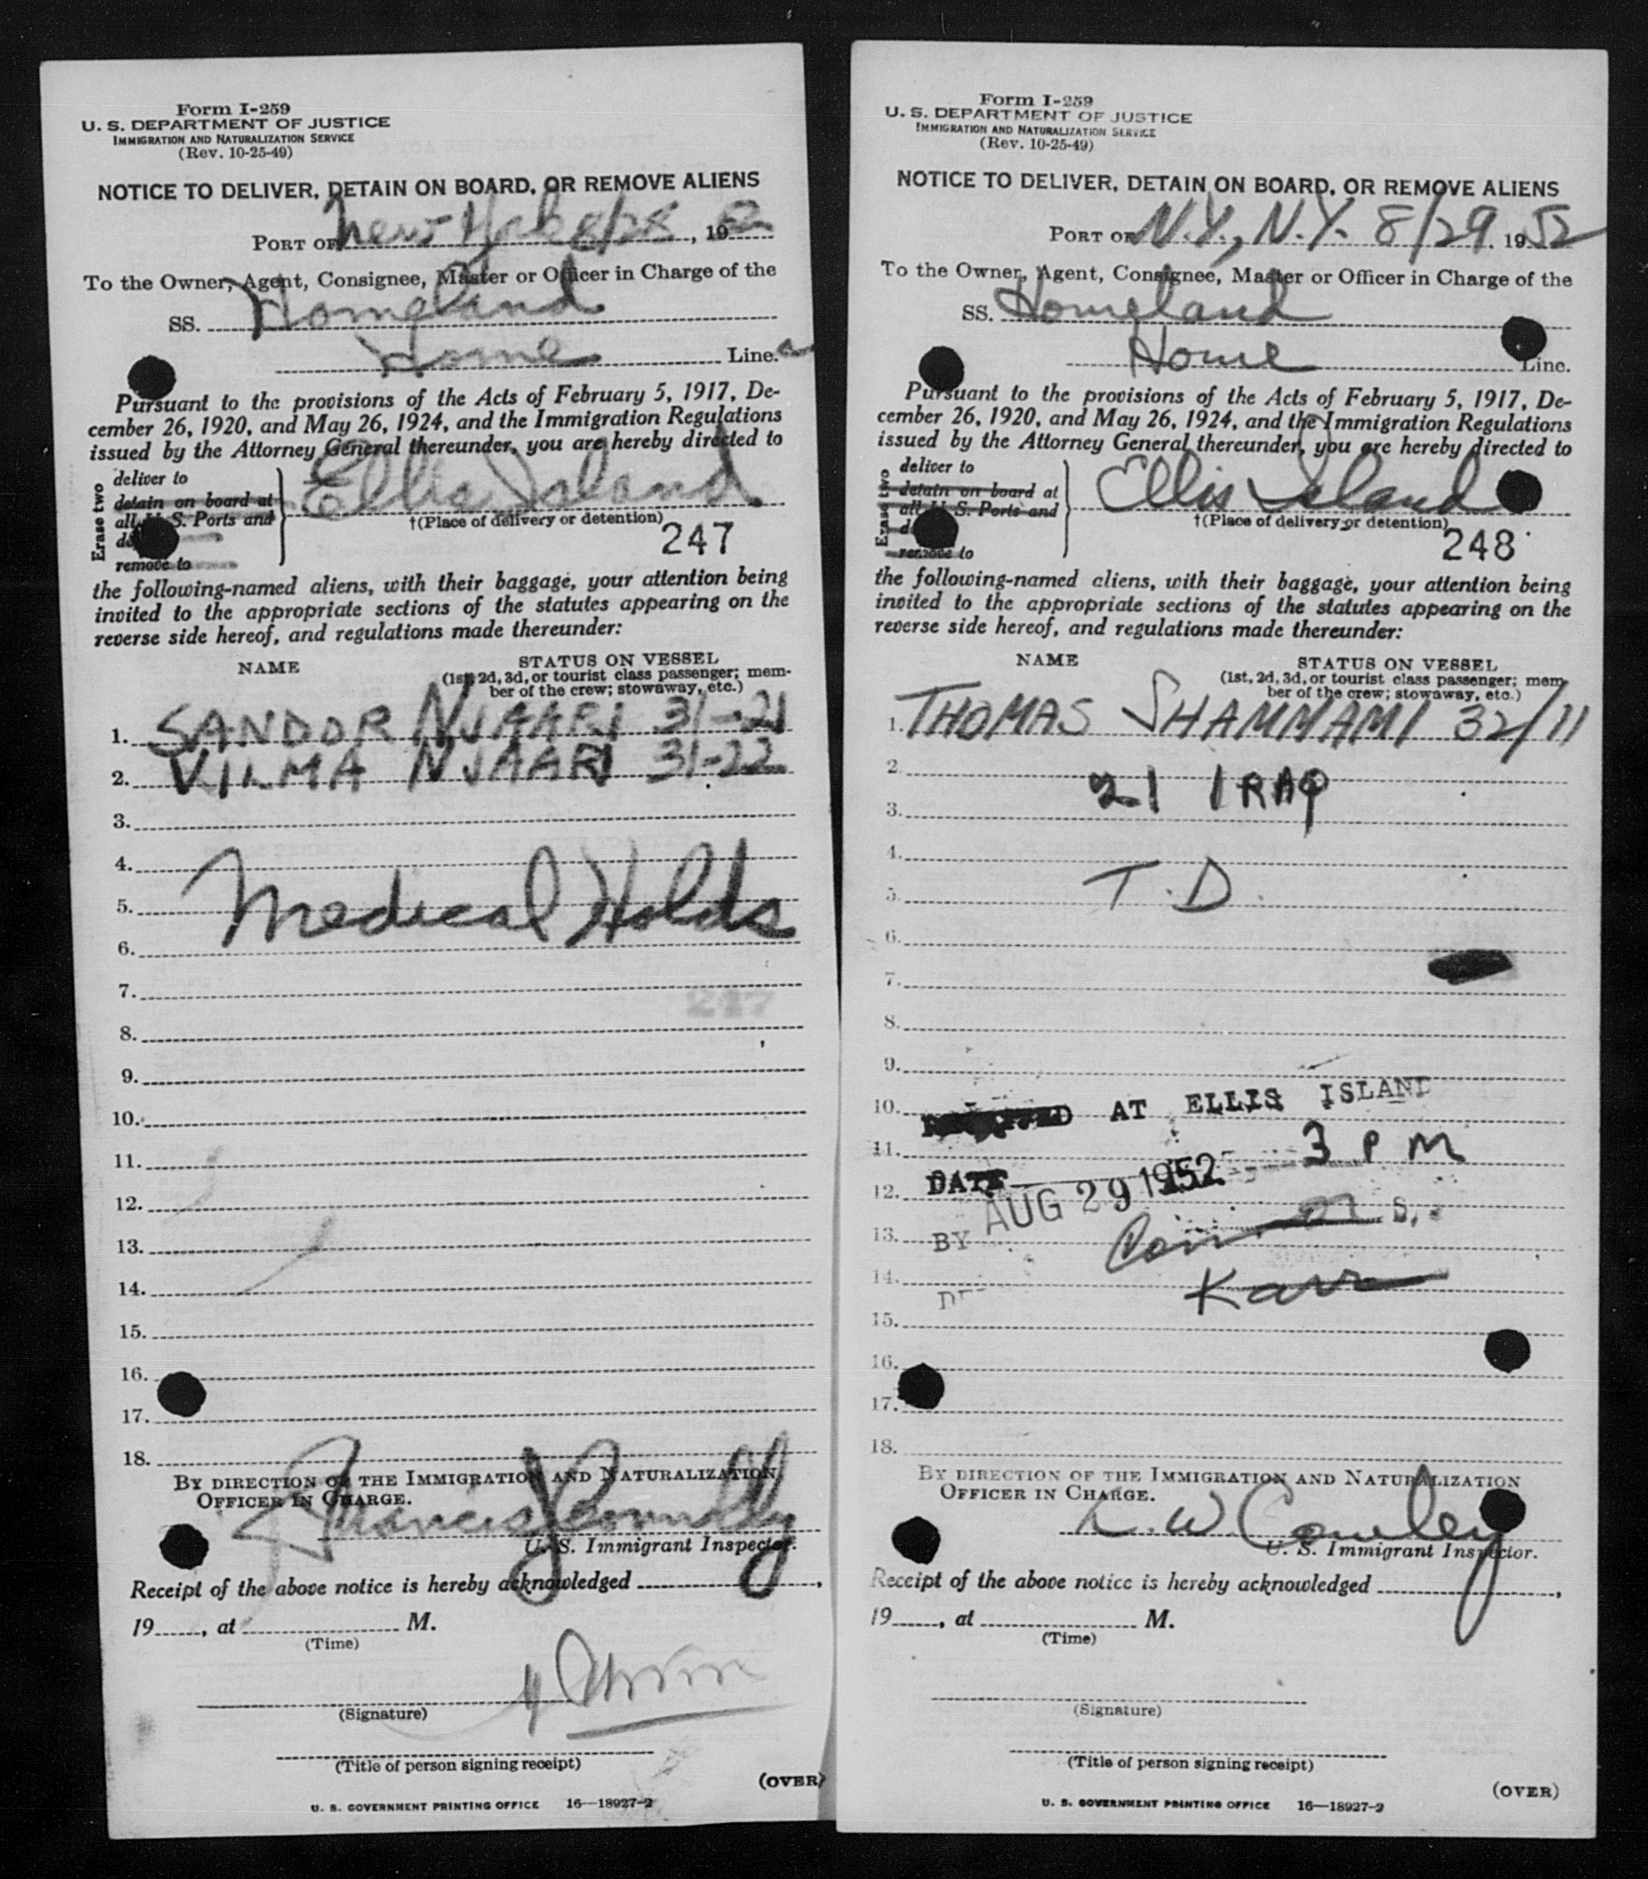 Form I-259
U. S. DEPARTMENT OF JUSTICE
IMMIGRATION AND NATURALIZATION SERVICE
(Rev. 10-25-49)
NOTICE TO DELIVER, DETAIN ON BOARD, OR REMOVE ALIENS
PORT OF New York 8/28, 1952
To the Owner, Agent, Consignee, Master or Officer in Charge of the
SS. Homeland
Home Line.
Pursuant to the provisions of the Acts of February 5, 1917, De-
cember 26, 1920, and May 26, 1924, and the Immigration Regulations
issued by the Attorney General thereunder, you are hereby directed to
Erase two
deliver to
detain on board at
all U. S. Ports and
remove to
Ellis Island
†(Place of delivery or detention)
247
the following-named aliens, with their baggage, your attention being
invited to the appropriate sections of the statutes appearing on the
reverse side hereof, and regulations made thereunder:
NAME STATUS ON VESSEL
(1st, 2d, 3d, or tourist class passenger; mem-
ber of the crew; stowaway, etc.)
1. SANDOR NJAARI 31-21
2. VILMA NJAARI 31-22
3.
4.
5. Medical Holds
6.
7.
247
8.
9.
10.
11.
12.
13.
14.
15.
16.
17.
18.
BY DIRECTION OF THE IMMIGRATION AND NATURALIZATION
OFFICER IN CHARGE.
Francis J Connolly
U. S. Immigrant Inspector.
Receipt of the above notice is hereby acknowledged
19, at M.
(Time)
(Signature)
(Title of person signing receipt)
(OVER)
U. S. GOVERNMENT PRINTING OFFICE 16—18927-2
Form I-259
U. S. DEPARTMENT OF JUSTICE
IMMIGRATION AND NATURALIZATION SERVICE
(Rev. 10-25-49)
NOTICE TO DELIVER, DETAIN ON BOARD, OR REMOVE ALIENS
PORT OF N.Y., N.Y. 8/29, 1952
To the Owner, Agent, Consignee, Master or Officer in Charge of the
SS. Homeland
Home Line.
Pursuant to the provisions of the Acts of February 5, 1917, De-
cember 26, 1920, and May 26, 1924, and the Immigration Regulations
issued by the Attorney General thereunder, you are hereby directed to
Erase two
deliver to
detain on board at
all U. S. Ports and
remove to
Ellis Island
†(Place of delivery or detention)
248
the following-named aliens, with their baggage, your attention being
invited to the appropriate sections of the statutes appearing on the
reverse side hereof, and regulations made thereunder:
NAME STATUS ON VESSEL
(1st, 2d, 3d, or tourist class passenger; mem-
ber of the crew; stowaway, etc.)
1. THOMAS SHAMMAMI 32/11
2. 21 IRAQ
3.
4.
5. T. D.
6.
7.
8.
9.
10. RECEIVED AT ELLIS ISLAND
11. 3 PM
12. DATE AUG 29 1952
13. BY
14. Karr
15.
16.
17.
18.
BY DIRECTION OF THE IMMIGRATION AND NATURALIZATION
OFFICER IN CHARGE.
L. W. Cowley
U. S. Immigrant Inspector.
Receipt of the above notice is hereby acknowledged
19, at M.
(Time)
(Signature)
(Title of person signing receipt)
(OVER)
U. S. GOVERNMENT PRINTING OFFICE 16—18927-2